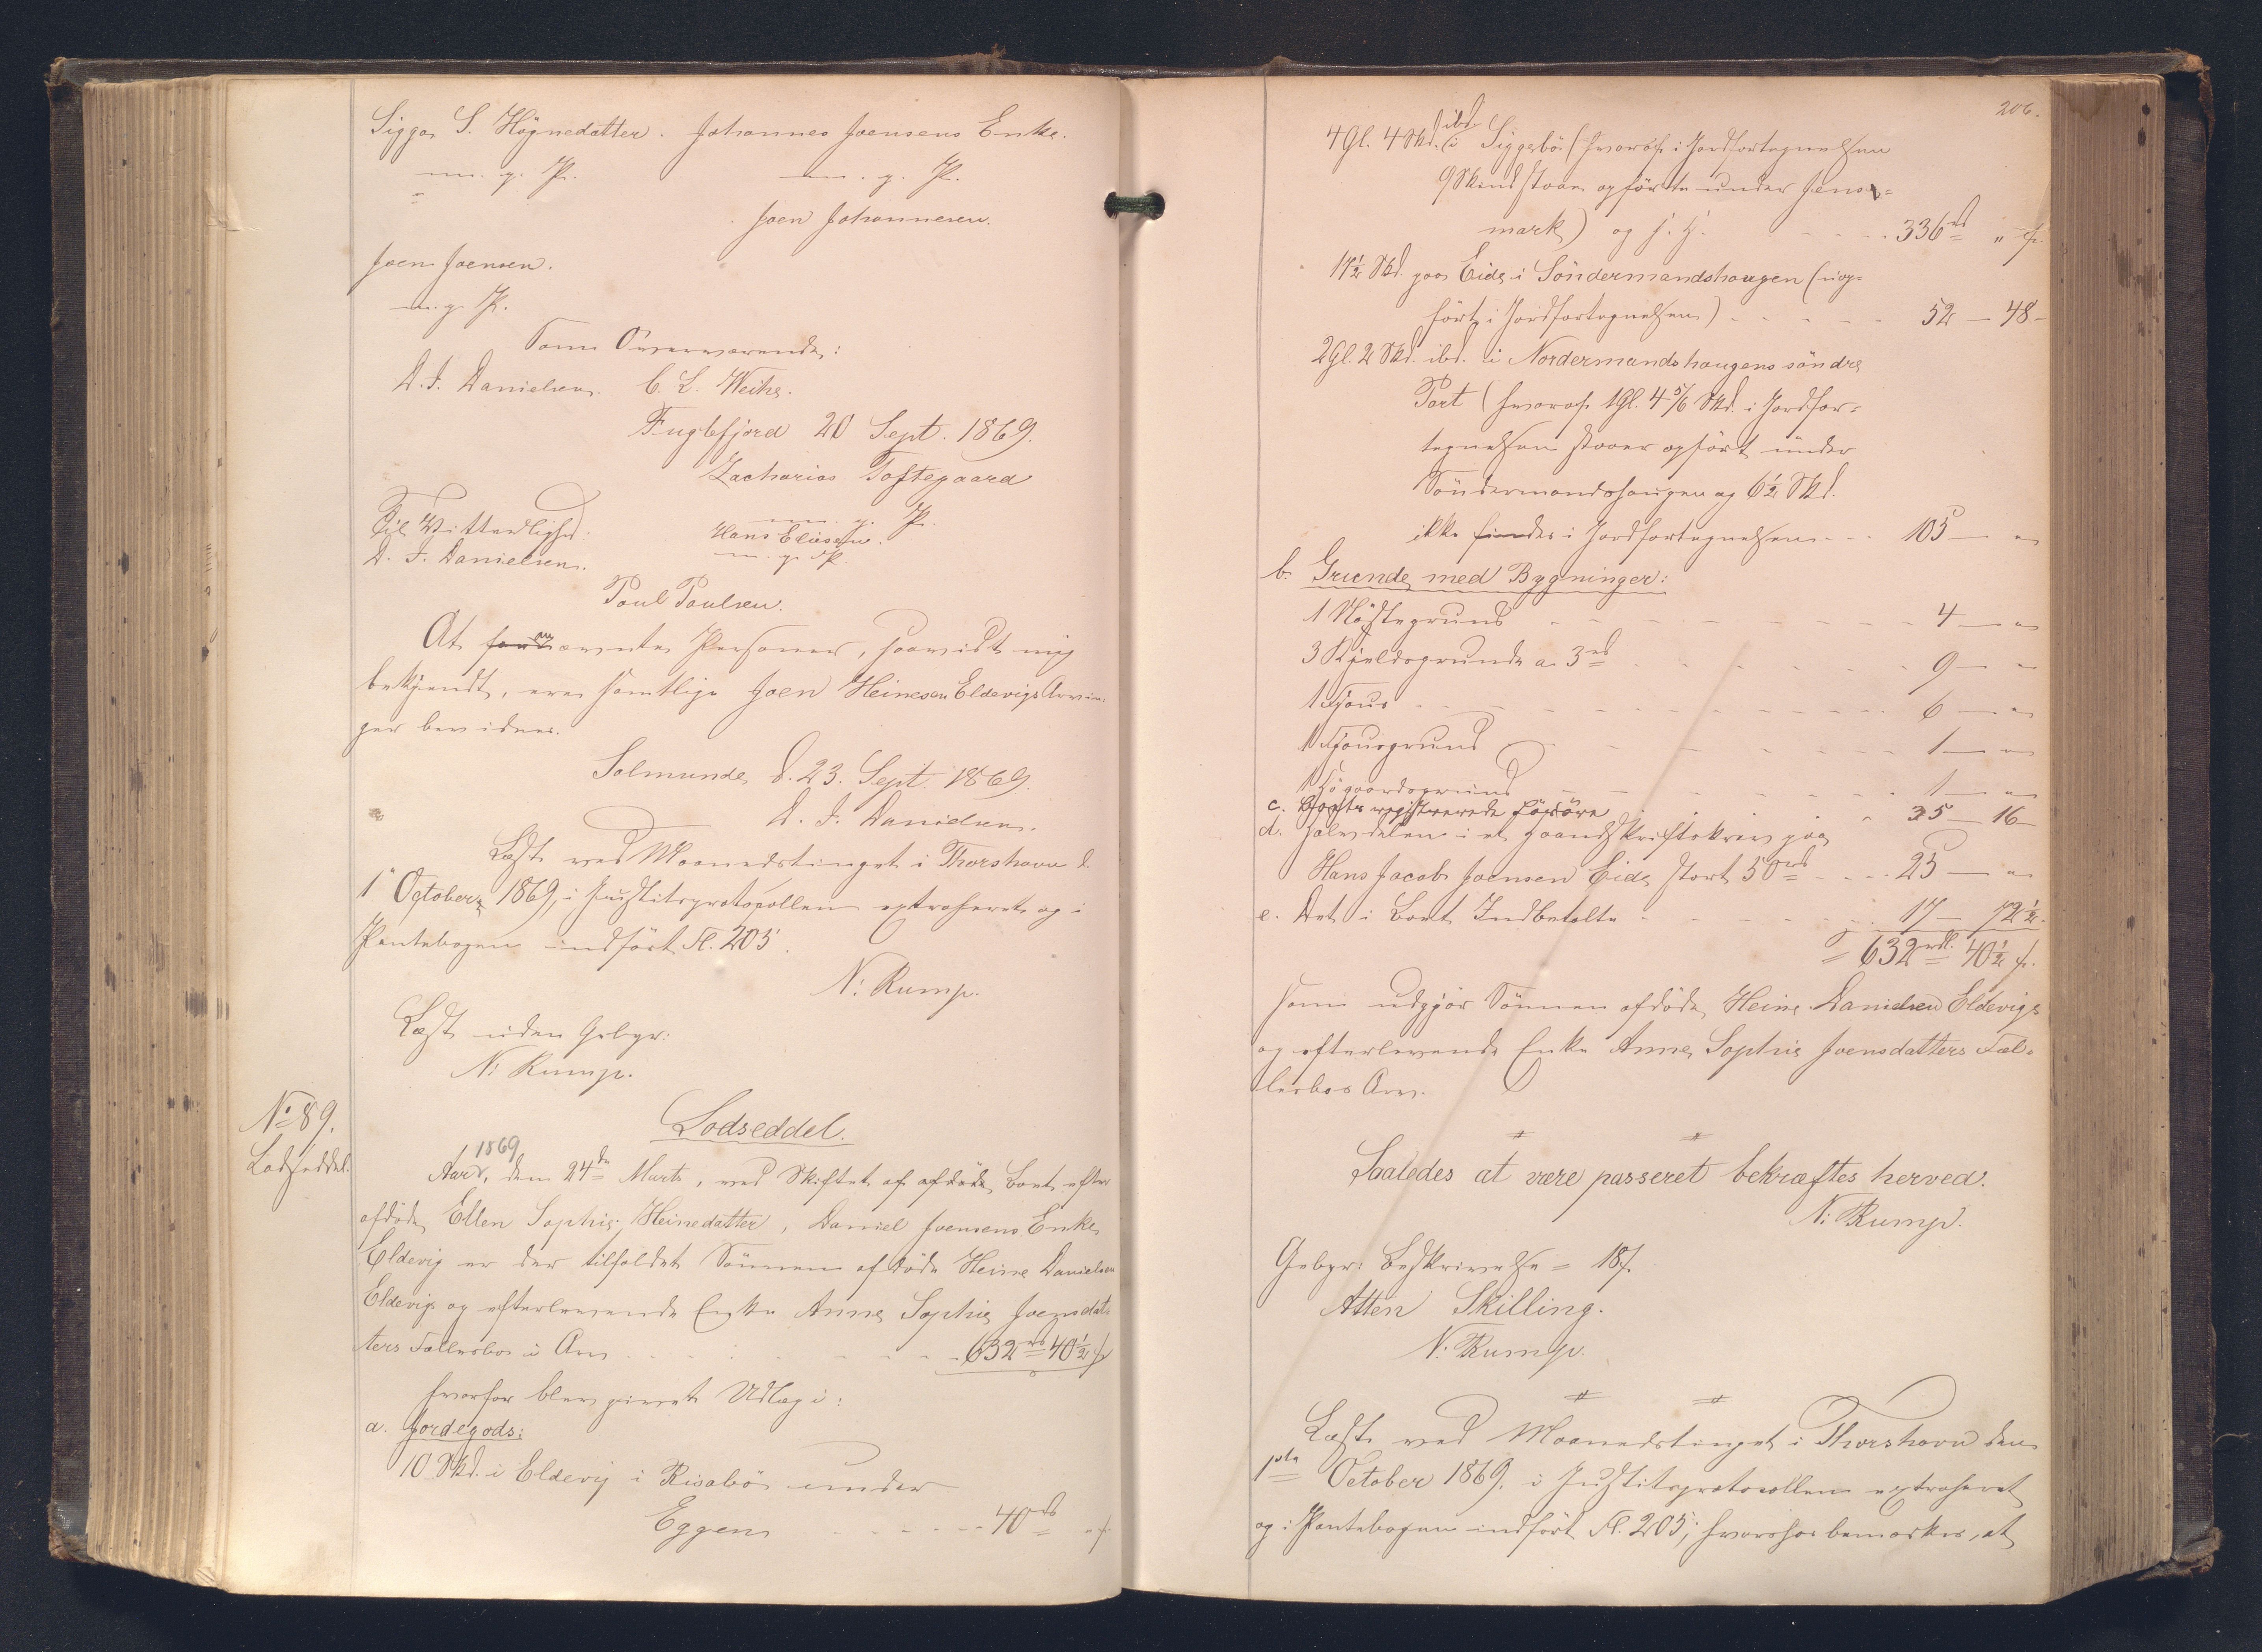 Sigga S. Högnedatter. Johannes Joensens Enke.
m. f. P. m. f. P.
Joen Johannesen.
Joen Joensen.
m. f. P.
Som Overværende:
D. J. Danielsen. C. L. Weihe.
Fuglefjord 20 Sept. 1869.
Zacharias Toftegaard
m. f. P.
Til Vitterlighed: Hans Eliasen.
D. J. Danielsen. m. f. P.
Poul Poulsen.
At forannævnte Personer, saavidt mig
bekjendt, ere samtlige Joen Heinesen Eldevigs Arvin-
ger bevidnes.
Solmunde d. 23. Sept. 1869.
D. J. Danielsen.
Læst ved Maanedstinget i Thorshavn d.
1 October 1869, i Justitsprotocollen extraheret og i
Pantebogen indført Fl. 205.
N: Rump.
Læst uden Gebyr:
N: Rump.
No 89.
Lodseddel.
Lodseddel.
Aar 1869, den 24de Marts, ved Skiftet af afdøde Boet efter
afdøde Ellen Sophie Heinedatter, Daniel Joensens Enke
Eldevig er der tilfaldet Sönnen afdöde Heine Danielsen
Eldevigs og efterlevende Enke Anne Sophie Joensdat-
ters Fællesbo i Arv 632 rd 40½ s
hvorfor blev givet Udlæg i:
a. Jordegods:
10 Skd. i Eldevig i Risabö under
Eggen 40 rd " s
206.
4 Gl. 4 Skd. ibd. i Siggabö (hvoraf i Jordfortegnelsen
9 Skind staaer opförte under Jens-
mark) og f. H. 336 rd " s
17½ Skd. paa Eide i Söndermandshaugen (uop-
fört i Jordfortegnelsen) 52 - 48 -
2 Gl. 2 Skd. ibd. i Nordermandshaugens söndre
Part (hvoraf 1 Gl. 4 5/6 Skd. i Jordfor-
tegnelsen staaer opfört under
Söndermandshaugen og 6½ Skd.
ikke findes i Jordfortegnelsen 105 - "
b. Grunde med Bygninger:
1 Nöstegrund 4 - "
3 Kjeldsgrunde a 3 rd 9 - "
1 Fjøus 6 - "
1 Fjøusgrund 1 - "
1 grund 1 - "
c. registrerede Lösöre 35 - 16 -
d. Halvdelen i et Haandskriftskrav paa
Hans Jacob Joensen Eide stort 50 rd 25 - "
e. Det i Boet Indbetalte 17 - 72½
= 632 rdl. 40½ s.
som udgjör Sönnen afdöde Heine Danielsen Eldevigs
og efterlevende Enke Anne Sophie Joensdatters Fæl-
lesbos Arv.
Saaledes at være passeret bekræftes herved.
N: Rump.
Gebyr: Beskrivelse = 18 s.
Atten Skilling.
N: Rump.
Læst ved Maanedstinget i Thorshavn den
1ste October 1869, i Justitsprotocollen extraheret
og i Pantebogen indfört Fl. 205; hvorhos bemærkes, at